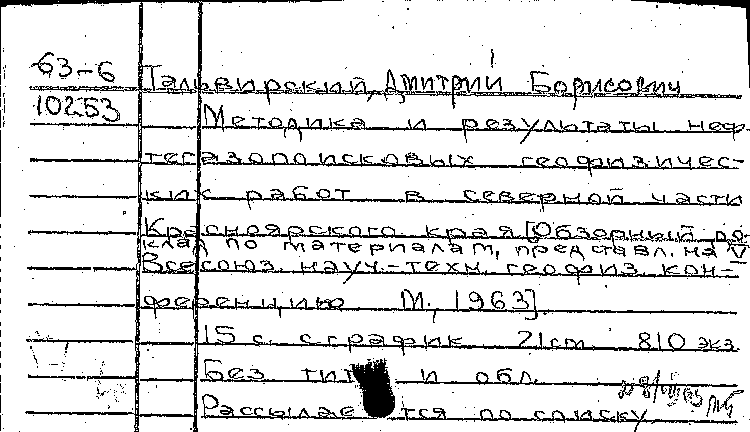 63-6 Тальвирский, Дмитрий Борисович
10253 Методика и результаты неф-
тегазопоисковых геофизичес-
ких работ в северной части
Красноярского края [Обзорный до-
клад по материалам, представл. на V
Всесоюз. науч.-техн. геофиз. кон-
ференцию М., 1963].
15 с. с график. 21 см. 810 экз.
Без тит и обл.
Рассылается по списку